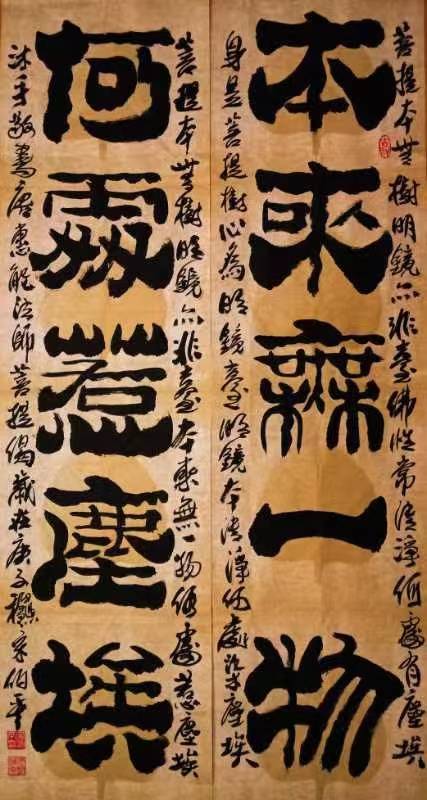 菩提本無樹明鏡亦非臺佛性常清淨何處有塵埃
本來無一物
身是菩提樹心為明鏡臺明鏡本清淨何處染塵埃
菩提本無樹明鏡亦非臺本來無一物何處惹塵埃
何處惹塵埃
沐手敬書唐惠能法師菩提偈歲在庚子穐